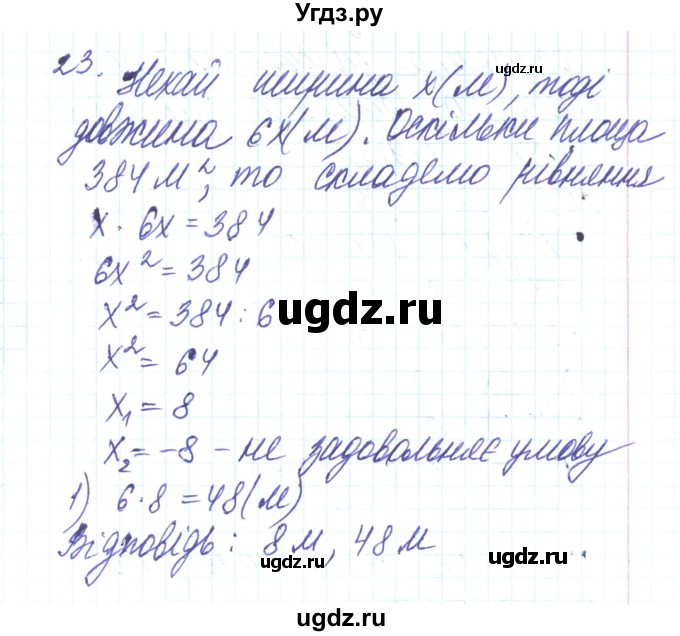 Угдз.ру
ugdz.ru
23. Нехай ширина x(м), тоді
довжина 6x(м). Оскільки площа
384 м², то складемо рівняння
ugdz.ru
x · 6x = 384
6x² = 384
x² = 384 : 6
ugdz.ru
x² = 64
x₁ = 8
x₂ = -8 - не задовольняє умову
ugdz.ru
1) 6 · 8 = 48(м)
Відповідь: 8м, 48м
ugdz.ru
ugdz.ru
ugdz.ru